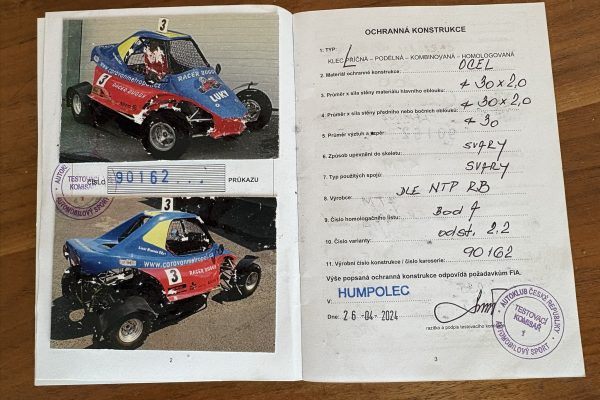 3
RACER BUGGY
LUKY
www.caravanmetropol.cz
3
RACER BUGGY
AUTOKLUB
TESTOVACÍ
KOMISAŘ
AUTOMOBILOVÝ SPORT
ČÍSLO 90162 PRŮKAZU
3
www.caravanmetropol.cz
3
RACER BUGGY
2
OCHRANNÁ KONSTRUKCE
1. TYP:
KLEC PŘÍČNÁ – PODÉLNÁ – KOMBINOVANÁ – HOMOLOGOVANÁ
2. Materiál ochranné konstrukce: OCEL
3. Průměr x síla stěny materiálu hlavního oblouku: 30 x 2,0
4. Průměr x síla stěny předního nebo bočních oblouků: 30 x 2,0
5. Průměr výztuh a vzpěr: 30
6. Způsob upevnění do skeletu: SVARY
7. Typ použitých spojů: SVARY
8. Výrobce: DLE NTP RB
9. Číslo homologačního listu: Bod 4
10. Číslo varianty: odst. 2.2
11. Výrobní číslo konstrukce / číslo karoserie: 90162
Výše popsaná ochranná konstrukce odpovídá požadavkům FIA.
V: HUMPOLEC
Dne: 26 -04- 2024
razítko a podpis testovacího komisaře
AUTOKLUB ČESKÉ REPUBLIKY
TESTOVACÍ
KOMISAŘ
1
AUTOMOBILOVÝ SPORT
3